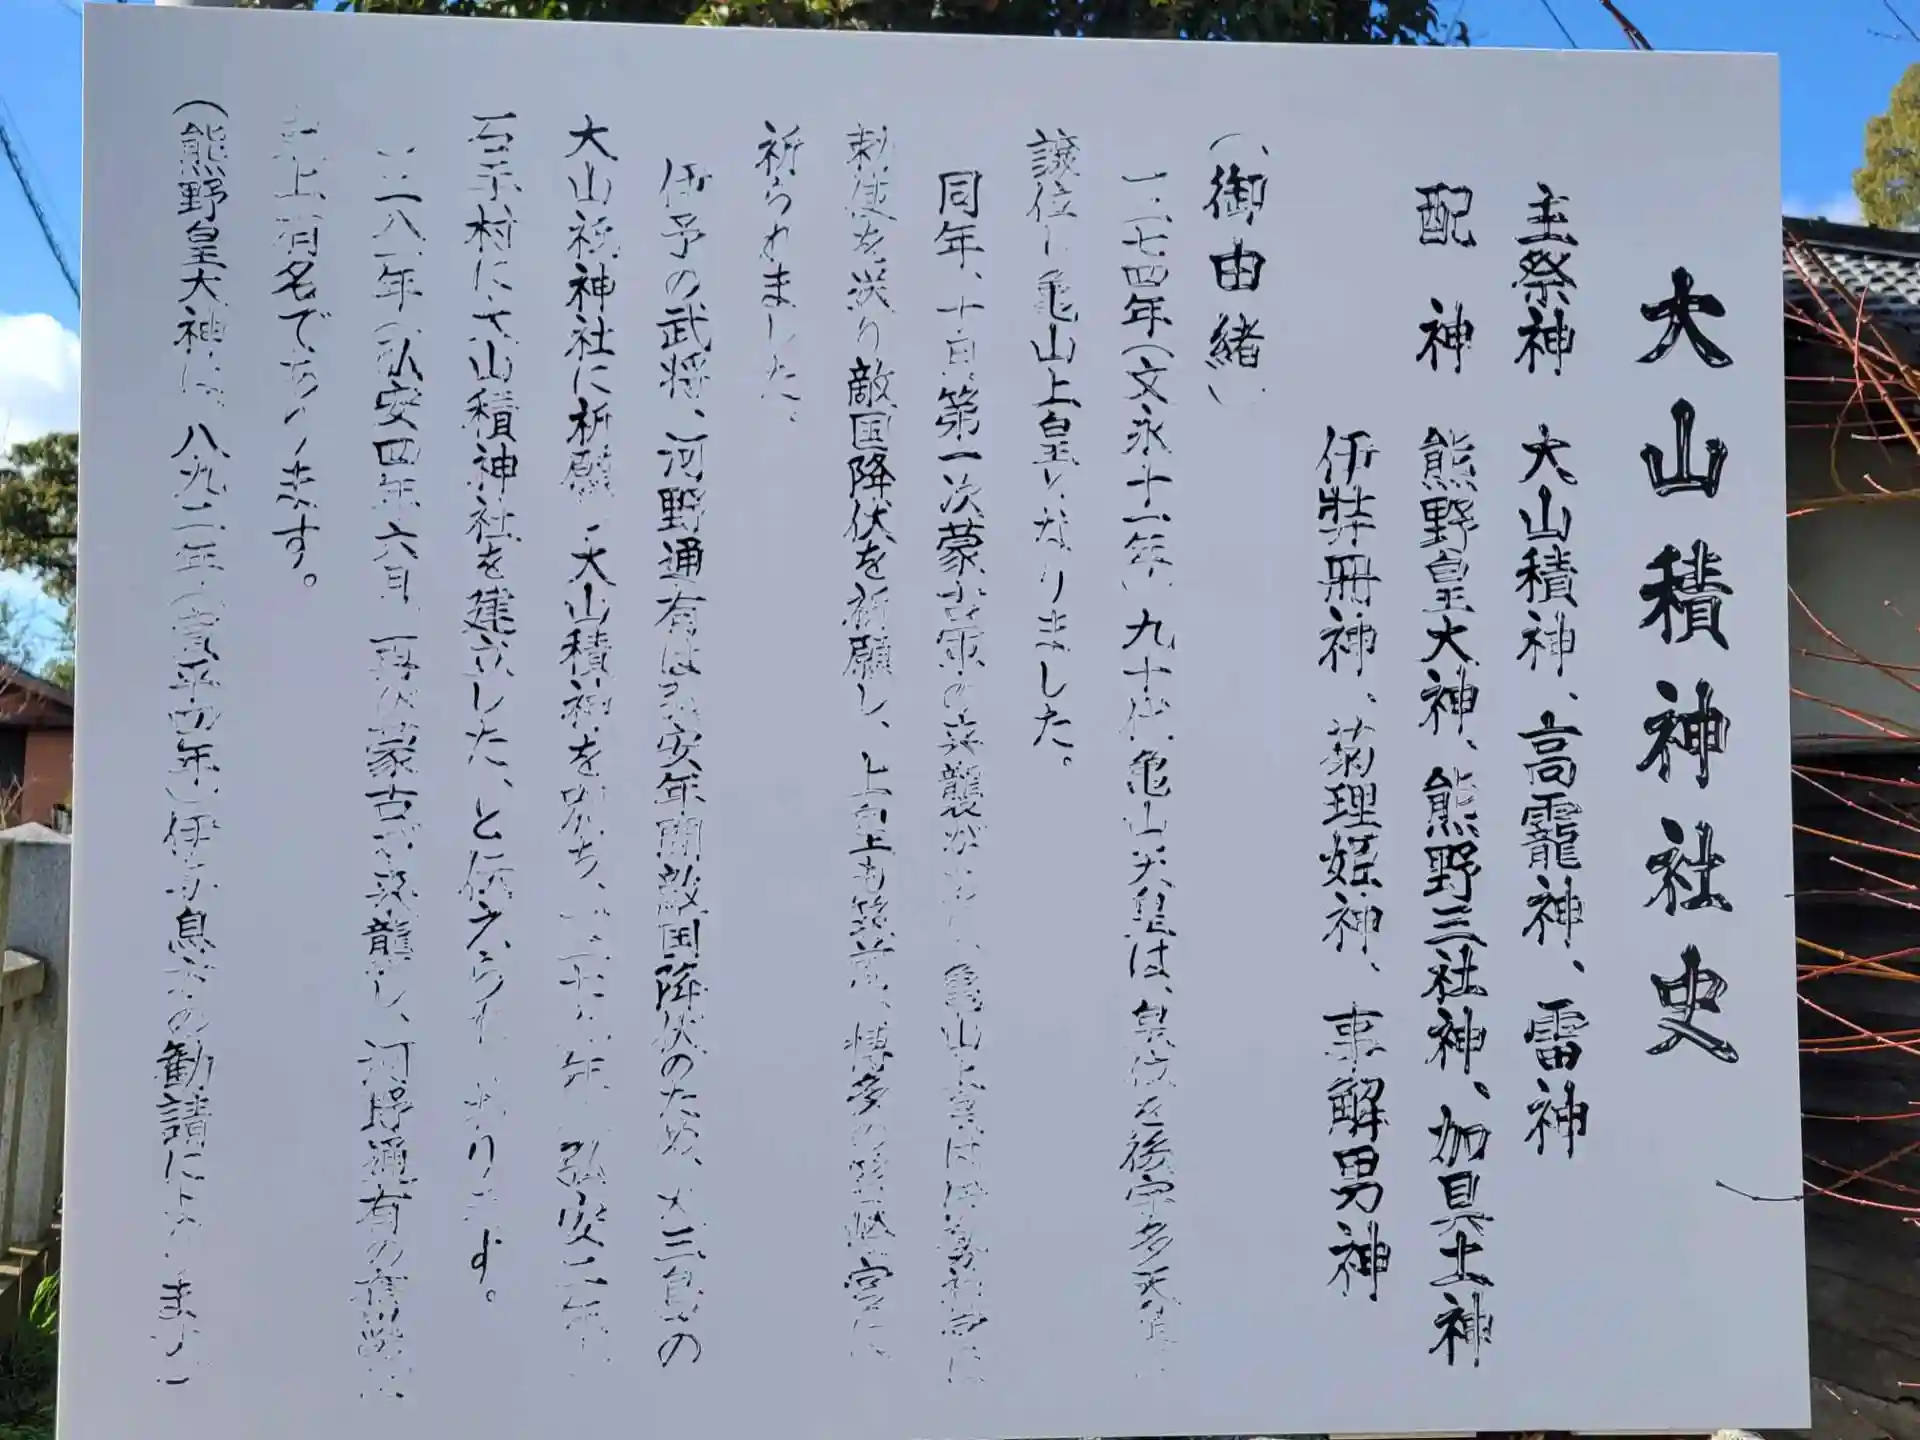 大山積神社史
主祭神 大山積神、高龗神、雷神
配神 熊野皇大神、熊野三社神、加具土神
伊弉冊神、菊理姫神、事解男神
(御由緒)
一二七四年(文永十一年)九十代亀山天皇は、皇位を後宇多天皇に
譲位し亀山上皇となりました。
同年、十月第一次蒙古軍の来襲が 亀山上皇は伊勢神宮に
勅使を送り敵国降伏を祈願し、上皇も筑前、博多の筥崎宮に
祈られました。
伊予の武将、河野通有は弘安年間敵国降伏のため、大三島の
大山祇神社に祈願し大山積神を 年(弘安二年)
石手村に大山積神社を建立した、と伝えられております。
一二八一年(弘安四年)六月、再び蒙古が来襲し、河野通有の奮戦
史上有名であります。
(熊野皇大神は、八九二年(寛平四年)伊予 の勧請によります)